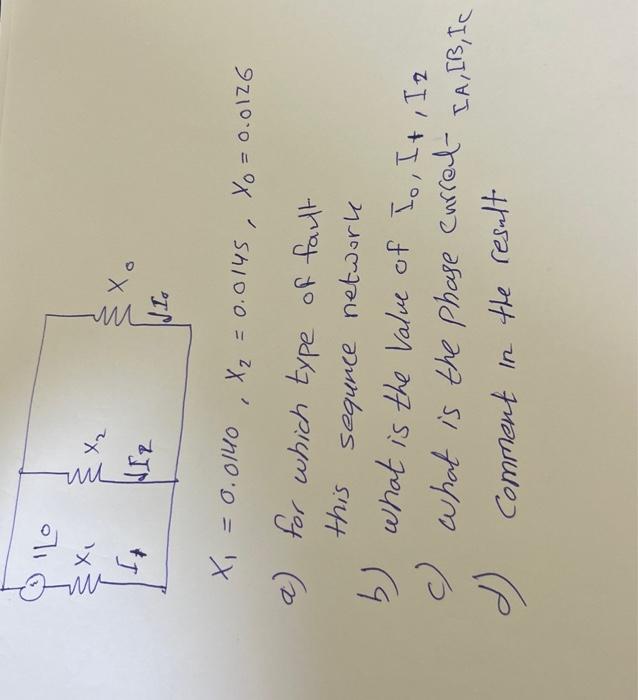 1∠0
X1
I+
X2
I2
X0
I0
X1 = 0.0140 , X2 = 0.0145 , X0 = 0.0126
a) for which type of fault
this sequnce network
b) what is the value of I0, I+, I2
c) what is the phase current IA, IB, IC
d) Comment in the result